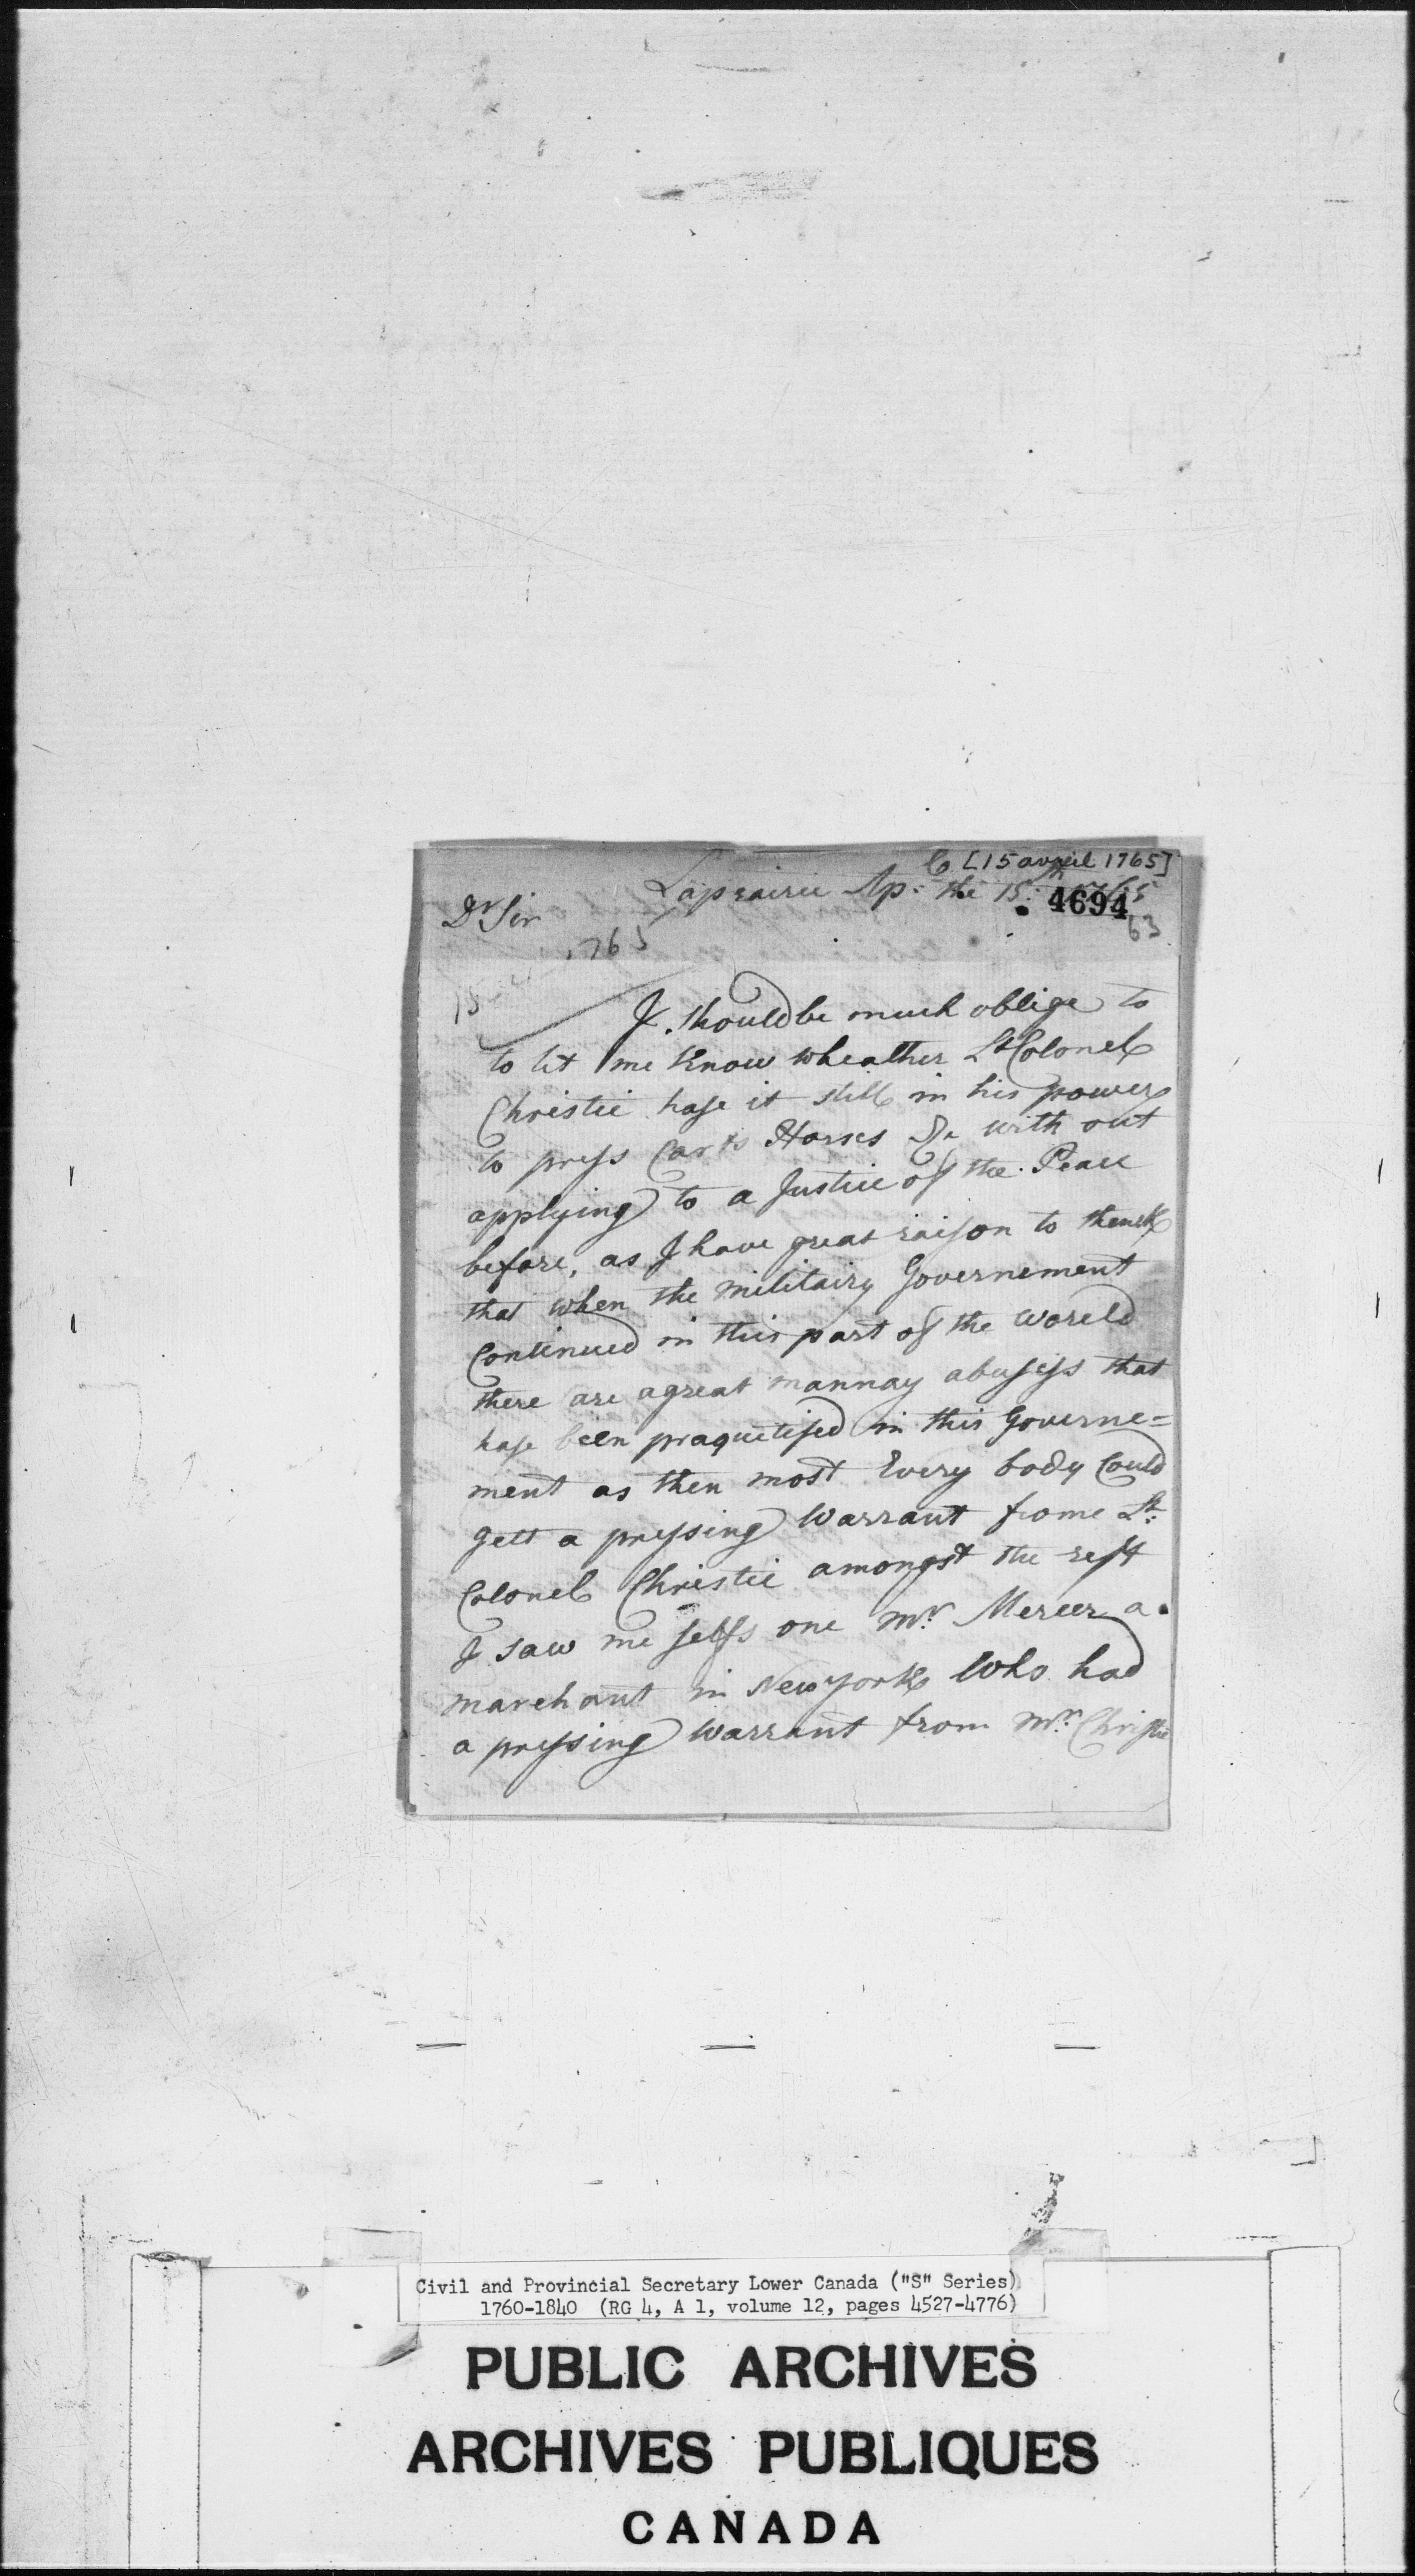 6 [15 avril 1765]
Laprairie Ap: the 15th 1765
4694
63
Dr Sir
1765
15
I should be much oblige to
to let me Know wheather Lt Colonel
Christie hase it still in his power
to press Carts Horses &c with out
applying to a Justice of the Peace
before, as I have great raison to thenck
that when the militairy Governement
Continued in this part of the World
there are a great mannay abusess that
hase been praquetised in this Governe=
ment as then most Every body Could
gett a pressing Warrant frome Lt:
Colonel Christie amongst the rest
I saw me selfs one Mr: Mercer a
marchant in New york Who had
a pressing Warrant from Mr: Christie
Civil and Provincial Secretary Lower Canada ("S" Series)
1760-1840 (RG 4, A 1, volume 12, pages 4527-4776)
PUBLIC ARCHIVES
ARCHIVES PUBLIQUES
CANADA